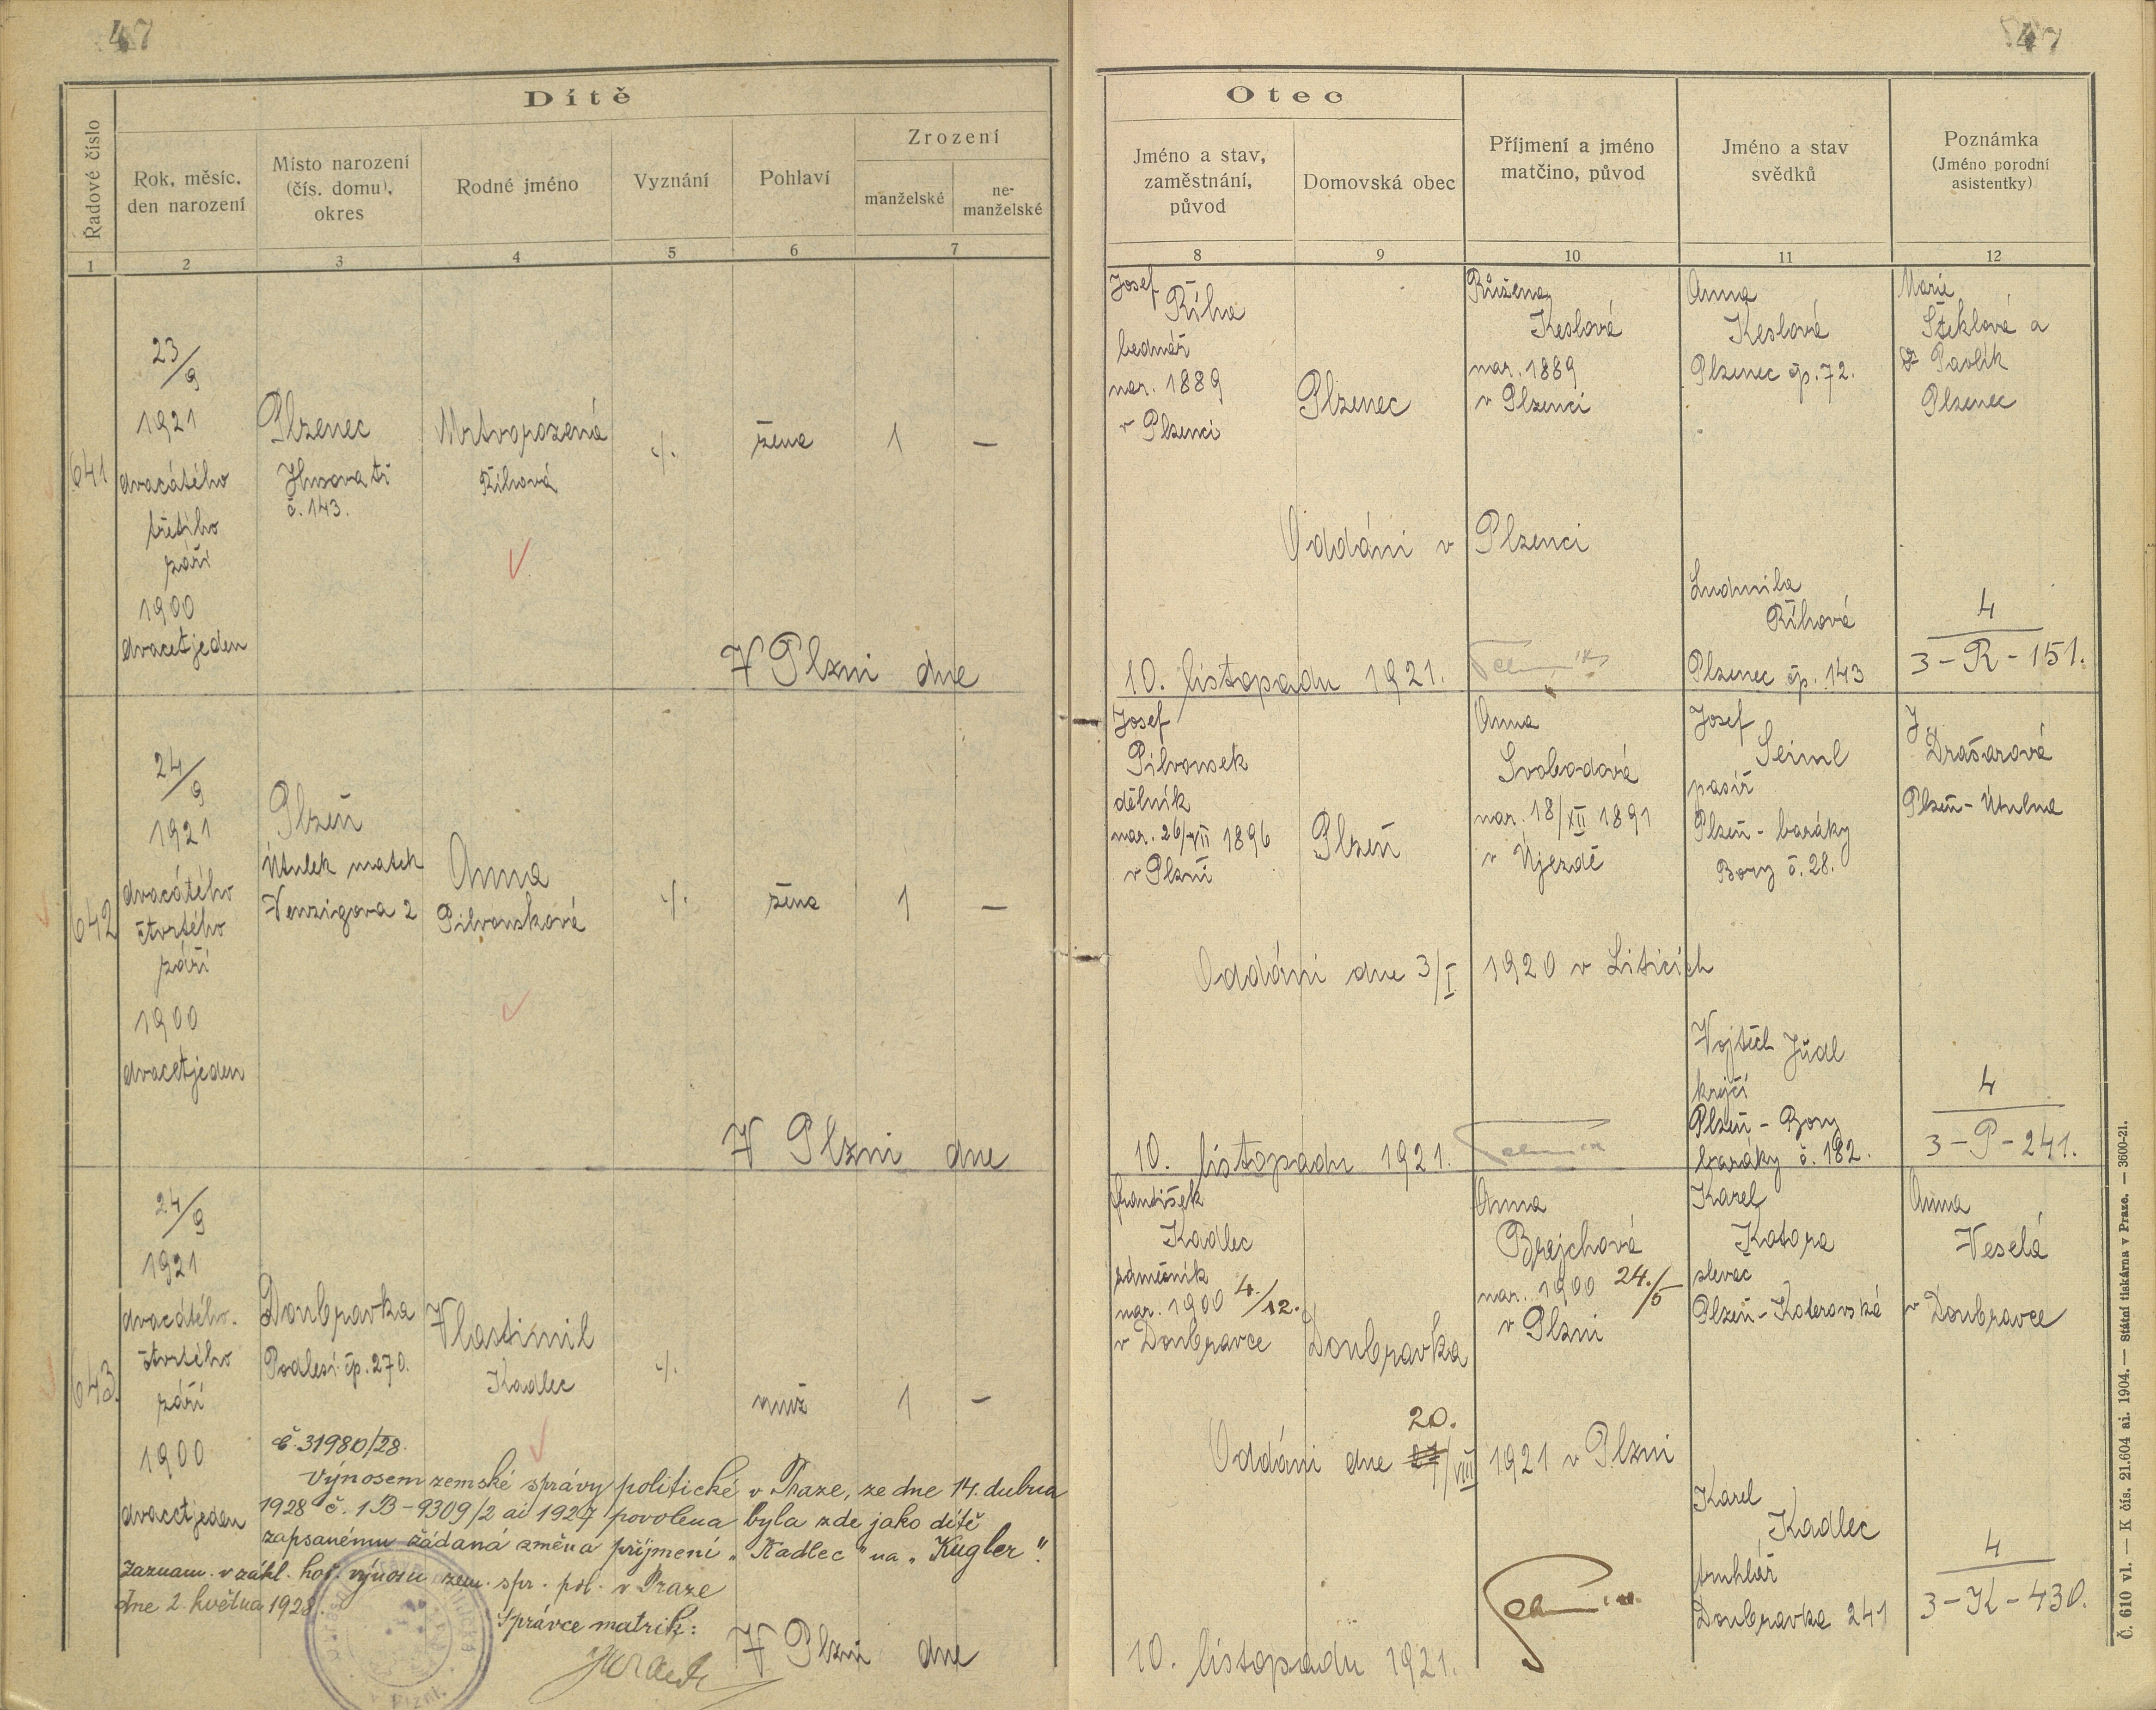 47
47
Dítě
Řadové číslo
Rok, měsíc,
den narození
Místo narození
(čís. domu),
okres
Rodné jméno
Vyznání
Pohlaví
Zrození
manželské
ne-
manželské
1
2
3
4
5
6
7
Otec
Jméno a stav,
zaměstnání,
původ
Domovská obec
Příjmení a jméno
matčino, původ
Jméno a stav
svědků
Poznámka
(Jméno porodní
asistentky)
8
9
10
11
12
641
23/9
1921
dvacátého
třetího
září
1900
dvacetjeden
Plzenec
Husova tř
č. 143.
Mrtvorozená
Říhová
./.
žena
1
—
V Plzni dne
Josef
Říha
bednář
nar. 1889
v Plzenci
Plzenec
Růžena
Keslová
nar. 1889
v Plzenci
Anna
Keslová
Plzenec čp. 72.
Marie
Šteklová a
Dr Pavlík
Plzenec
Oddáni v Plzenci
Ludmila
Říhová
Plzenec čp. 143
4
3-R-151.
10. listopadu 1921.
642
24/9
1921
dvacátého
čtvrtého
září
1900
dvacetjeden
Plzeň
Útulek matek
Venzigova 2
Anna
Pilvousková
./.
žena
1
—
V Plzni dne
Josef
Pilvousek
dělník
nar. 26/VII 1896
v Plzni
Plzeň
Anna
Svobodová
nar. 18/XII 1891
v Újezdě
Josef
Seiml
pasíř
Plzeň - baráky
Bory č. 28.
J.
Drašarová
Plzeň - Útulna
Oddáni dne 3/I 1920 v Liticích
Vojtěch Jůdl
krejčí
Plzeň - Bory
baráky č. 182.
4
3-P-241.
10. listopadu 1921.
643.
24/9
1921
dvacátého
čtvrtého
září
1900
dvacetjeden
Doubravka
Podlesí čp. 270.
Vlastimil
Kadlec
./.
muž
1
—
č. 31980/28.
Výnosem zemské správy politické v Praze, ze dne 14. dubna
1928 č. 1B-9309/2 ai 1927 povolena byla zde jako dítě
zapsanému žádaná změna příjmení „Kadlec" na „Kugler".
Zaznam. v zákl. hoř. výnosu zem. spr. pol. v Praze
dne 2. května 1928.
Správce matrik:
V Plzni dne
František
Kadlec
zámečník
nar. 1900 4./12.
v Doubravce
Doubravka
Anna
Brejchová
nar. 1900 24./5
v Plzni
Karel
Kotora
slevač
Plzeň - Koterovská
Anna
Veselá
v Doubravce
20.
Oddáni dne /VIII 1921 v Plzni
Karel
Kadlec
truhlář
Doubravka 241
4
3-K-430.
10. listopadu 1921.
Č. 610 vl. — K čís. 21.604 ai. 1904. — Státní tiskárna v Praze. — 3600-21.